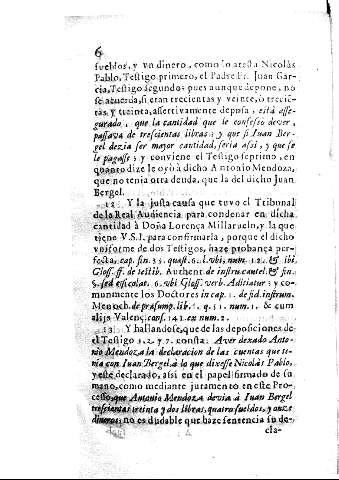 6
sueldos, y vn dinero, como lo atesta Nicolàs
Pablo, Testigo primero, el Padre Fr. Juan Gar-
cia, Testigo segundo; pues aunque depone, no
se acuerda, si eran trecientas y veinte, ò treciē-
tas y treinta, assertivamente depusa, està asse-
gurado, que la cantidad que le confessò dever,
passava de trescientas libras; y que si Iuan Ber-
gel dezia ser mayor cantidad, seria assi, y que se
le pagasse; y conviene el Testigo septimo, en
quanto dize le oyò à dicho Antonio Mendoza,
que no tenia otra deuda, que la del dicho Juan
Bergel.
12 Y la justa causa que tuvo el Tribunal
de la Real Audiencia para condenar en dicha
cantidad à Doña Lorença Millaruelo, y la que
tiene V.S.I. para confirmarla, porque el dicho
vniforme de dos Testigos, haze probança per-
fecta, cap. fin. 35. quæst. 6. l. vbi, num. 12. & ibi
Gloss. ff. de testib. Authent. de instru. cautel. & fin.
§. sed est colat. 6. vbi Gloss. verb. Aditiatur; y co-
munmente los Doctores in cap. 1. de fid. instrum.
Menoch. de præsump. lib. 1. q. 11. num. 1. & cum
alijs Valenç. cons. 142. ex num. 2.
13 Y hallandose, que de las deposiciones
del Testigo 3. 2. y 7. consta: Aver dexado Anto-
nio Mendoza la declaracion de las cuentas que te-
nia con Iuan Bergel, à lo que dixesse Nicolàs Pablo,
y este declarado, assi en el papel firmado de su
mano, como mediante juramento en este Pro-
cesso, que Antonio Mendoza devia à Iuan Bergel
trescientas treinta y dos libras, quatro sueldos, y onze
dineros; no es dudable que haze sentencia su de-
cla-